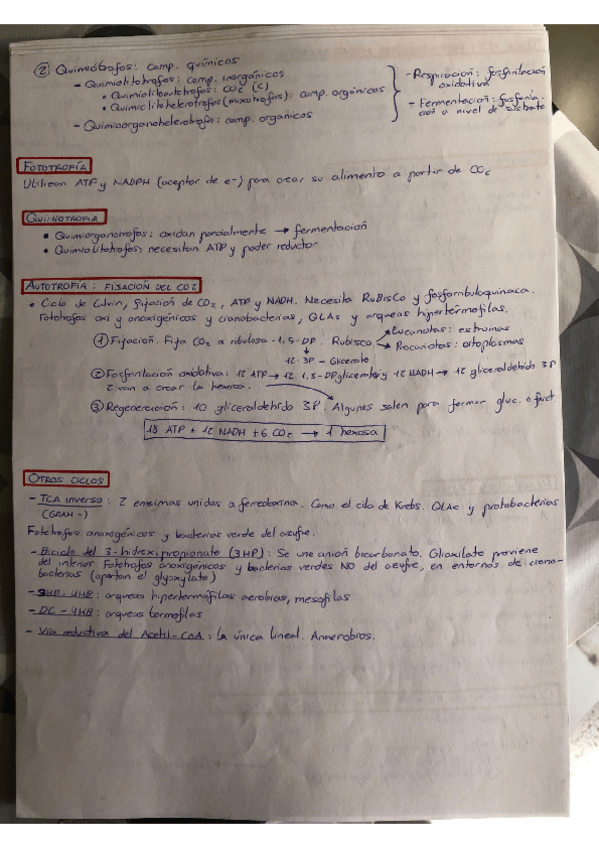 ② Quimiótrofos: comp. químicos
- Quimiolitotrofos: comp. inorgánicos
• Quimiolitoautotrofos: CO2 (C)
• Quimiolitoheterotrofos (mixotrofos): comp. orgánicos
- Quimioorganoheterotrofo: comp. organicos
- Respiracion: fosforilación oxidativa
- Fermentacion: fosforilacion a nivel de sustrato
FOTOTROFÍA
Utilizan ATP y NADPH (aceptor de e-) para crear su alimento a partir de CO2
QUIMIOTROFIA
• Quimiorganotrofos: oxidan parcialmente → fermentación
• Quimiolitotrofos: necesitan ATP y poder reductor
AUTOTROFIA: FIJACIÓN DEL CO2
• Ciclo de Calvin, fijación de CO2, ATP y NADH. Necesita RuBisCo y fosforribuloquinasa.
Fotótrofos oxi y anoxigénicos y cianobacterias, QLAs y arqueas hipertermofilas.
① Fijación. Fija CO2 a ribulosa-1,5-DP. Rubisco
Eucariotas: estromas
Procariotas: 
↓
12·3P-Glicerato
② Fosforilación oxidativa: 12 ATP → 12 1,3-DPglicerato y 12 NADH → 12 gliceraldehído 3P
2 van a crear la hexosa.
③ Regeneración: 10 gliceraldehído 3P. Algunos salen para formar gluc. o fruct
18 ATP + 12 NADH + 6 CO2 → 1 hexosa
OTROS CICLOS
- TCA inverso: 2 enzimas unidas a ferredoxina. Como el ciclo de Krebs. QLAs y protobacterias
(GRAM -)
Fotótrofos anoxigénicos y bacterias verde del azufre.
- Biciclo del 3-hidroxipropionato (3HP): Se une anión bicarbonato. Glioxilato proviene
del interior. Fotótrofos anoxigénicos y bacterias verdes NO del azufre, en entornos de ciano-
bacterias (aportan el glyoxylato)
- 3HP-4HB: arqueas hipertermófilas aerobias, mesofilas
- DC-4HB: arqueas termofilas
- Vía reductiva del Acetil-COA: la única lineal. Anaerobios.